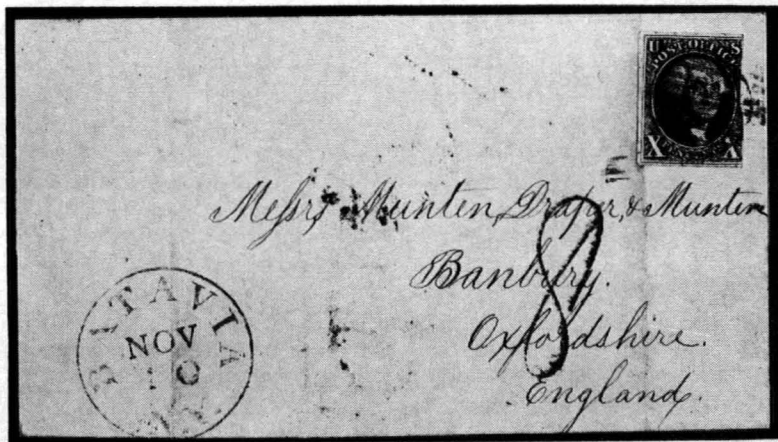 U S
POST OFFICE
X X
Messrs Munten, Draper, & Munten
Banbury.
8
Oxfordshire.
England.
BATAVIA
NOV